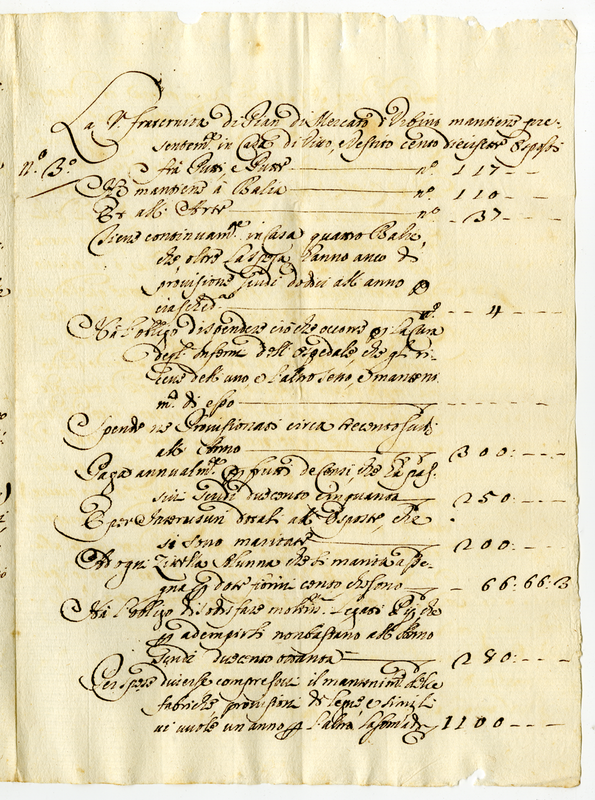 La V. fraternita di Pian di Mercato d'Urbino mantiene pre-
sentem.te in Casa di Vivo, e Vestito cento diecisette Esposti
n.° 3.° frà Putti, e Putte n.° 117
Ne mantiene à Balia n.° 110
Et all' Arte n.° 37
Tiene continuam.te in Casa quattro Balie,
che oltre la spesa hanno anco di
provisione scudi dodici all' anno p
ciasched.a n.° 4
Hà l'obligo di spendere ciò che occorre p la cura
degl' Infermi dell' Ospedale, che gli ri-
ceve dell' uno, e l'altro sesso, e manteni
m.to di esso
Spende ne Provisionati circa trecento scudi
all' Anno 300:
Paga annualm.te p frutti de Censi, che hà pas-
sivi scudi duecento cinquanta 250:
E per Interusurii dotali alle Esposte, che
si sono maritate 200:
Ad ogni Zitella Alunna che si marita asse-
gna p dote fiorini cento che sono 66: 66: 3
Hà l'obligo di sodisfare molti Legati Pij, che
p adempirli non bastano all' Anno
scudi duecento ottanta 280:
Per spese diverse compresovi il mantenim.to delle
fabriche, provisioni di legne, e simili
vi vuole un anno p l'altro la somma di 1100